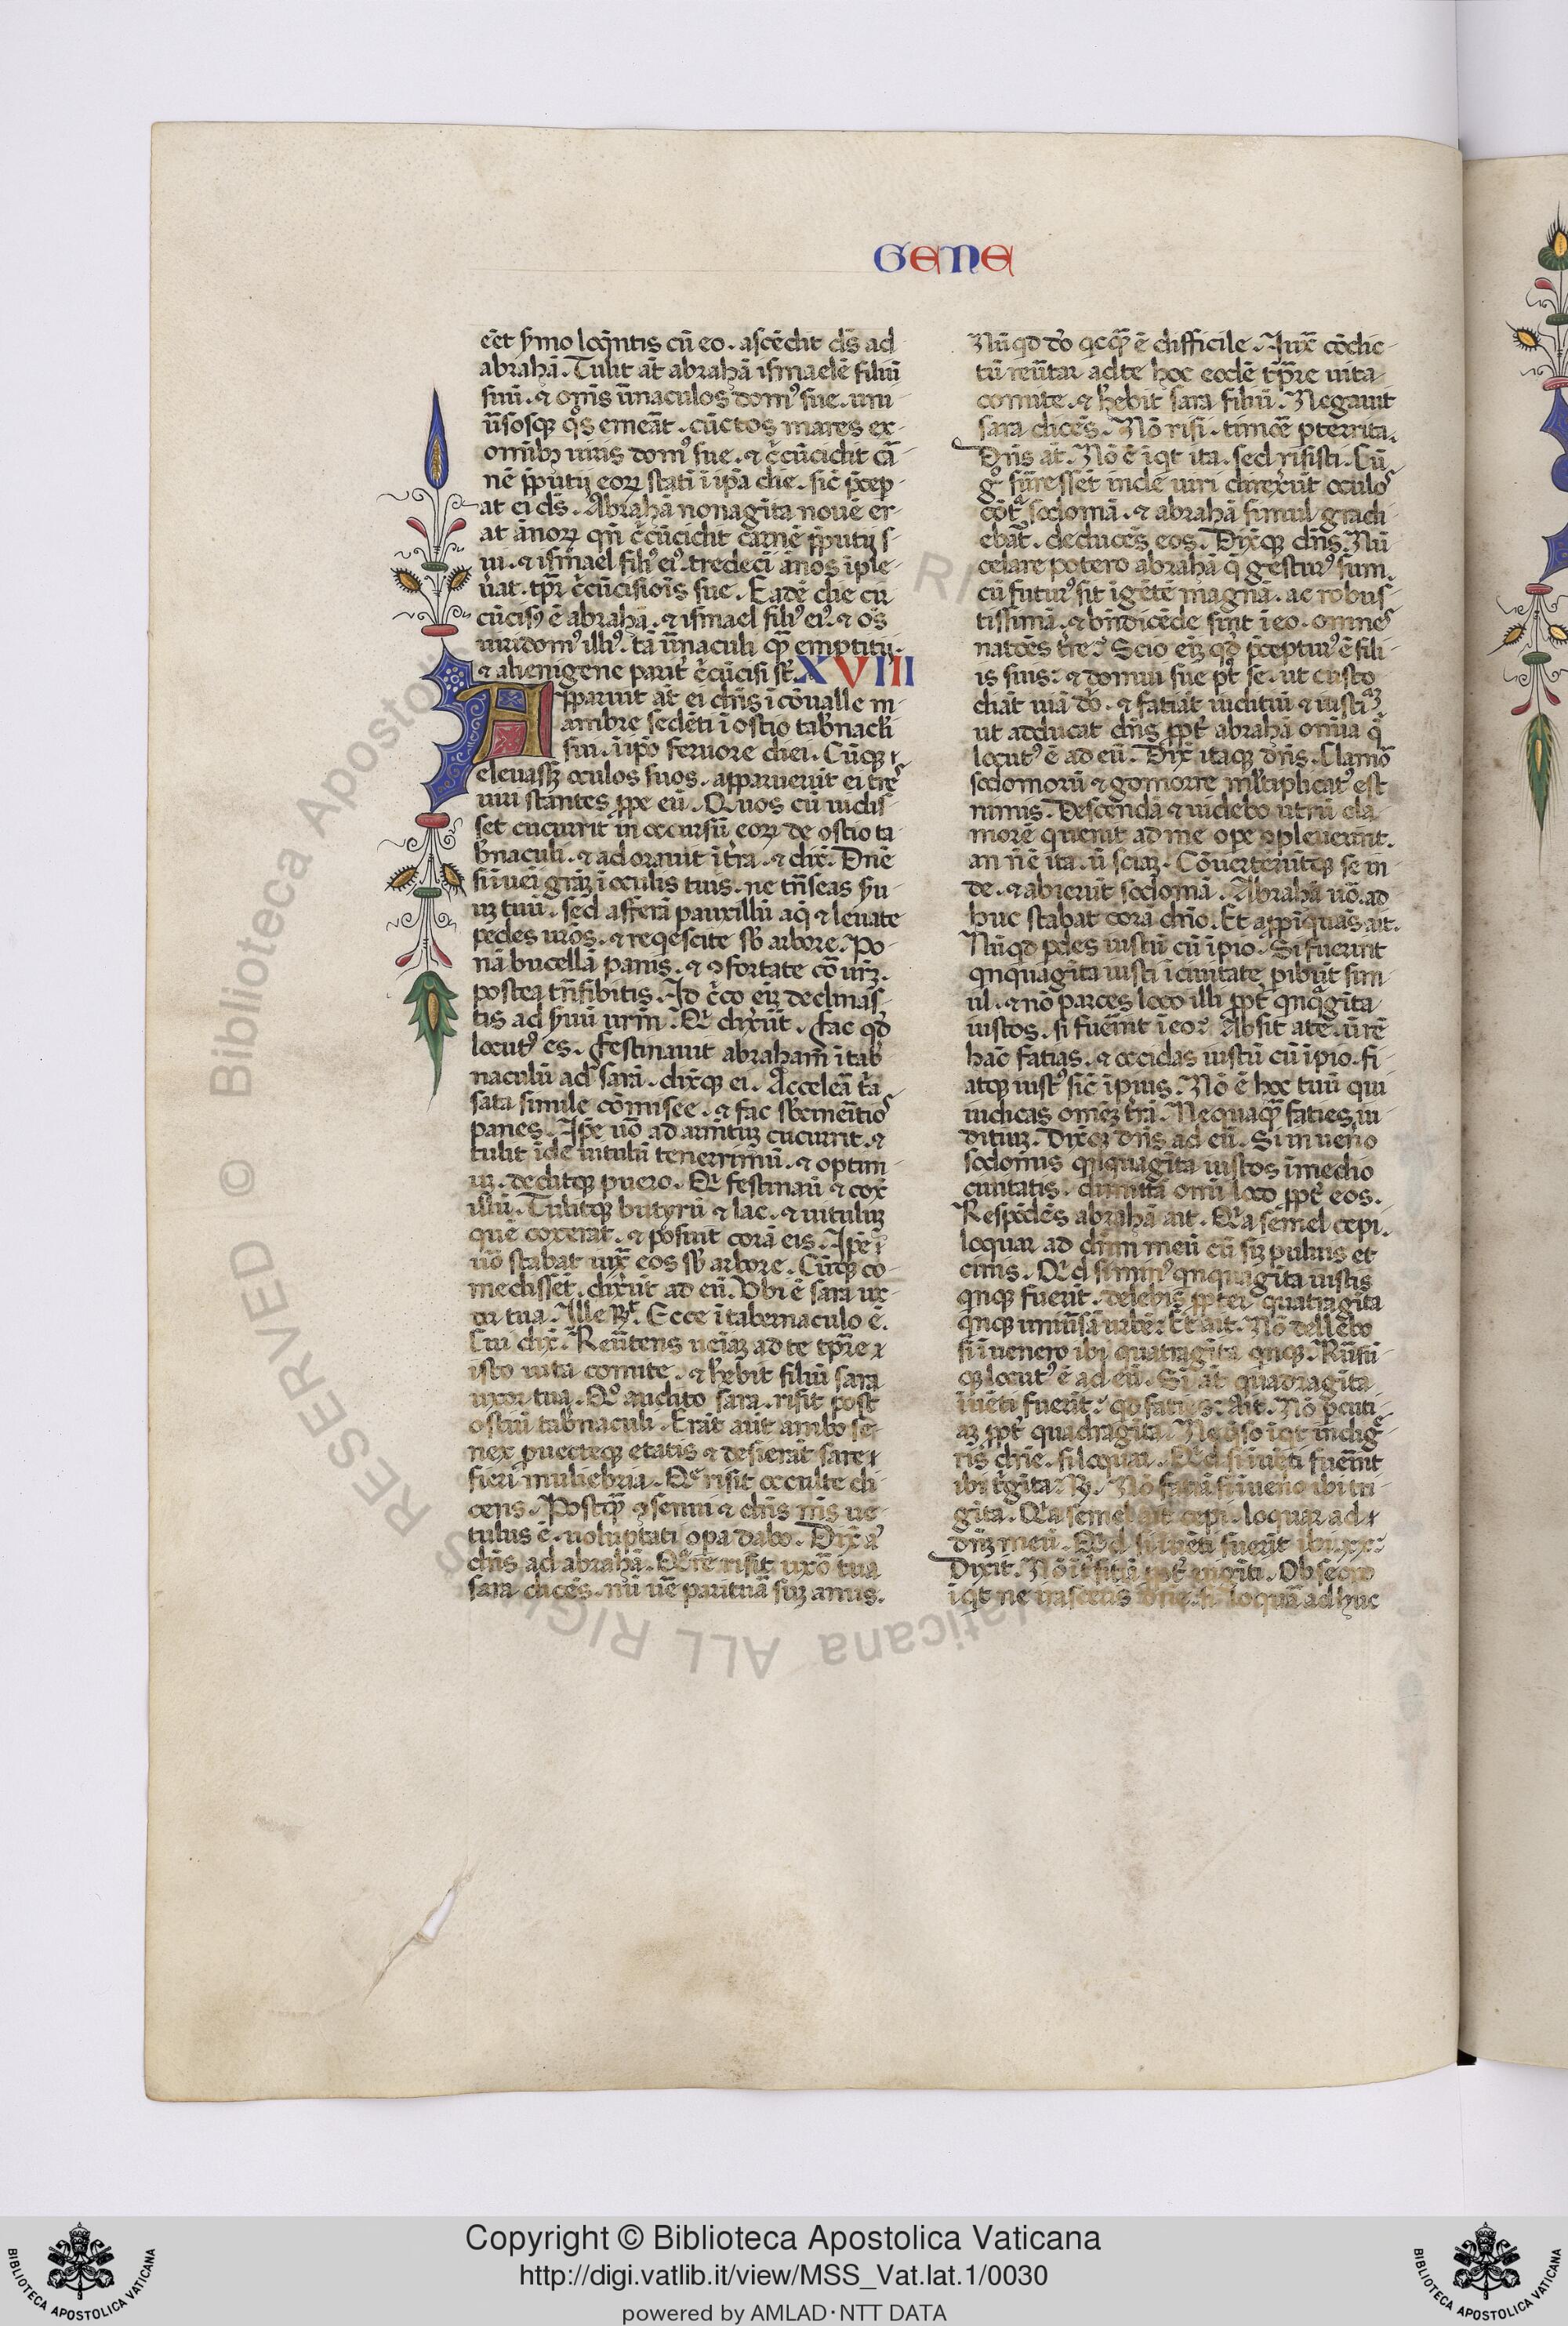 GENE
eēt ẜmo loq̄ntis cū eo. ascēdit dṡ ad
abrahā. Tulit āt abrahā ismaelē filiū
suū. ⁊ om̄s ūnaculos domꝰ sue. uni
ūsosqꝫ q̊s emeāt. cūctos mares ex
omībꝫ uiris domꝰ sue. ⁊ c̄cūcidit cā
nē p̄putii eoꝝ stati ī ip̄a die. sic̄ p̄cep
at ei ds̄. Abrahā nonagīta nouē er
at ānoꝝ qn̄ c̄cūcidit carnē p̄putii s
ui. ⁊ ismael filiꝰ eiꝰ. tredecī ānos īple
ūat. tpr̄ c̄cūcisiōis sue. Eadē die cū
cūcisꝰ ē abrahā. ⁊ ismael filiꝰ eiꝰ. ⁊ os̄
uiri domꝰ illiꝰ. tā ūnaculi qꝫ emptitii.
⁊ alienigene parit̄ c̄cūcisi st̄. XVIII
Apparuit āt ei dn̄s ī cōualle m
ambre sedēti ī ostio tab̄nacl̄i
sui. ī ip̄o feruore diei. Cūqꝫ
eleuass̄ oculos suos. apparuerūt ei trē
uiri stantes ꝓpe eū. Quos cū uidis
set cucurrit in occursū eoꝝ de ostio ta
b̄naculi. ⁊ adorauit ī tr̄a. ⁊ dix̄. Dn̄e
si īueī grāꝫ ī oculis tuis. ne tn̄seas ẜu
uꝫ tuū. sed afferā pauxillū aq̄ ⁊ leuate
pedes ur̄os. ⁊ reqescite sb̄ arbore. Po
nā bucellā panis. ⁊ ꝯfortate cō ur̄ꝫ.
postea tn̄sibitis. Id c̄co eīꝫ declinas
tis ad ẜuū urm̄. Qͥ dixer̄ūt. Fac qd̄
locutꝰ es. Festinauit abraham̄ ī tab̄
naculū ad sarā. dix̄qꝫ ei. Accelerā tr̄a
sata simile cōmisce. ⁊ fac sb̄cinēticiō
panes. Ip̄e uō ad armētuꝫ cucurrit. ⁊
tulit īde uitulū tenerrimū. ⁊ optim
uꝫ. deditqꝫ puero. Qͥ festinaū ⁊ cox̄
illū. Tulitqꝫ butyrū ⁊ lac. ⁊ uituluꝫ
quē coxerat. ⁊ posuit corā eis. Ip̄e
uō stabat iux̄ eos sb̄ arbore. Cūqꝫ co
medissēt. dixer̄ūt ad eū. Vbi ē sara ux
or tua. Ille R̄t. Ecce ī tabernaculo ē.
Cui dix̄. Reūtens ueīaꝫ ad te tpr̄e
isto uita comite. ⁊ hēbit filiū sara
uxor tua. Qͦ audito sara. risit post
ostiū tab̄naculi. Erāt aūt ambo se
nex ꝓuecteqꝫ etatis ⁊ desierāt sare
fieri muliebria. Qͤ risit occulte di
cens. Postqꝫ ꝯsenui ⁊ dn̄s m̄s ue
tulus ē. uoluptati opā dabo. Dix̄ aͥ
dn̄s ad abrahā. Qͬre risit uxō tua
sara dicēs. nū uē paritura suꝫ anus.
Nūqd dō qcqꝫ ē difficile. Iux̄ cōdic
tū reūtar ad te hoc eodē tp̄re uita
comite. ⁊ hēbit sara filiū. Negauit
sara dicēs. Nō risi. timoē ꝑterrita.
Dn̄s āt. Nō ē iqt ita. sed risisti. Cū
gͦ sūrexissēt inde uiri direxer̄ūt oculoˢ
cōtͣ sodomā. ⁊ abrahā simul gradi
ebāt. deducēs eos. Dix̄qꝫ dn̄s. Nū
celare potero abrahā q̄ gesturꝰ sum.
cū futurꝰ sit ī gētē magnā. ac robus
tissimā. ⁊ bn̄dicēde sint ī eo. omneˢ
natiōes tr̄re? Scio eīꝫ qd̄ p̄cepturꝰ ē fili
is suis: ⁊ domui sue pt̄ se. ut custo
diāt uiā dō. ⁊ faciāt iuditiū ⁊ iustiᵃꝫ
ut adducat dn̄s ꝓpt̄ abrahā omīa q̄
locutꝰ ē ad eū. Dix̄ itaqꝫ dn̄s. Clamō
sodomorū ⁊ gomorre ml̄tiplicatꝰ est
nimis. Descendā ⁊ uidebo utrū cla
morē q uenit ad me opē ꝯpleuerint.
an n̄ ē ita. ū sciaꝫ. Cōuerterūtqꝫ se in
de. ⁊ abierūt sodomā. Abrahā uō. ad
huc stabat corā dn̄o. Et app̄iquās ait.
Nūqd ꝑdes iustū cū īpio. Si fuerīt
qnquagīta iusti ī ciuitate ꝑibūt sim
ul. ⁊ nō parces loco illi ꝓpt̄ qnqͣgīta
iustos. si fuer̄int ī eo? Absit a te. ū rē
hāc fatias. ⁊ occidas iustū cū īpio. fi
atqꝫ iustꝰ sic̄ īpius. Nō ē hoc tuū qui
iudicas omēꝫ tr̄ā. Nequaqꝫ faties iu
ditiuꝫ. Dix̄qꝫ dn̄s ad eū. Si inuen̄o
sodomis qnquagīta iustos ī medio
ciuitatis. dimittā omī loco ꝓpt̄ eos.
Respōdēs abrahā ait. Qͣa semel cepi.
loquar ad dn̄m meū cū siꝫ puluis et
cinis. Qͥd si minꝰ qnquagīta iustis
qnqꝫ fuerīt. delebis ꝓpter quatragīta
qnqꝫ uniūsā urbē? Et ait. Nō dellebo
si īuenero ibi quatragīta qnqꝫ. Rūsū
qꝫ locutꝰ ē ad eū. Si āt quadragīta
īuēti fuerīt? qd faties? Ait. Nō ꝑcuti
aꝫ ꝓpt̄ quadragīta. Ne qͦso iqt indigͤ
ris dn̄e. si loquar. Qͥd si īuēti fuer̄int
ibi tͥgīta? R̄. Nō faciā si īuen̄o ibi tri
gīta. Qͣa semel ait cepi. loquar ad
dn̄ꝫ meū. Qͥd si īuēti fuerīt ibi. xx?
Dixit. Nō īt̄fitiā ꝓpt̄ uigīti. Obsecro
iqt ne irascaris dn̄e. si loquar adhuc
Copyright © Biblioteca Apostolica Vaticana
http://digi.vatlib.it/view/MSS_Vat.lat.1/0030
powered by AMLAD·NTT DATA
BIBLIOTECA APOSTOLICA VATICANA
BIBLIOTECA APOSTOLICA VATICANA